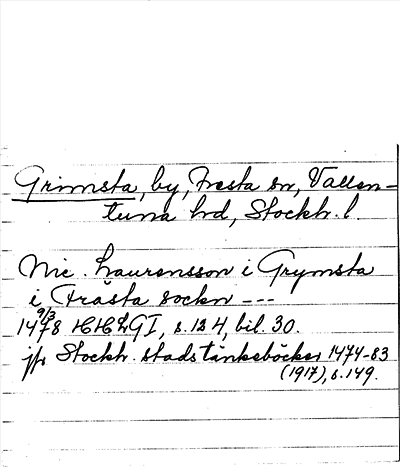 Grimsta, by, Fresta sn, Vallen-
tuna hd, Stockh. l.
Nic. Laurensson i Grymsta
i Frästa sockn ---
9/3
1478 HHLGI, s. 124, bil. 30.
jfr Stockh. stads tänkeböcker 1474-83
(1917), s. 149.